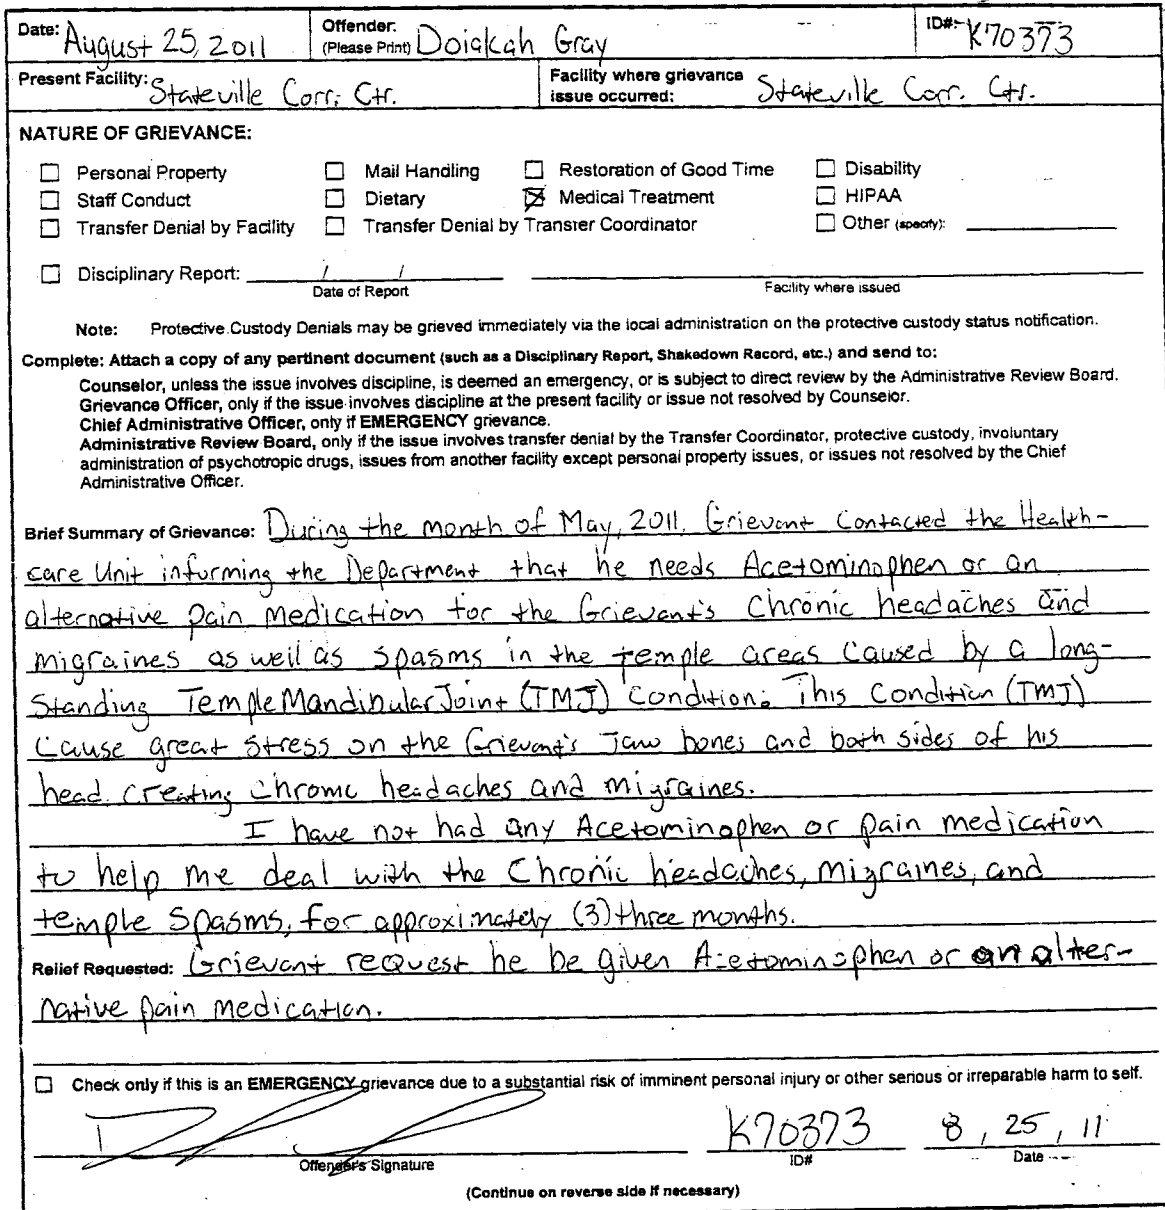 Date: August 25, 2011 Offender: (Please Print) Doiakah Gray ID#: K70373
Present Facility: Stateville Corr. Ctr. Facility where grievance issue occurred: Stateville Corr. Ctr.
NATURE OF GRIEVANCE:
☐ Personal Property ☐ Mail Handling ☐ Restoration of Good Time ☐ Disability
☐ Staff Conduct ☐ Dietary ☒ Medical Treatment ☐ HIPAA
☐ Transfer Denial by Facility ☐ Transfer Denial by Transfer Coordinator ☐ Other (specify):
☐ Disciplinary Report: / /
Date of Report Facility where issued
Note: Protective Custody Denials may be grieved immediately via the local administration on the protective custody status notification.
Complete: Attach a copy of any pertinent document (such as a Disciplinary Report, Shakedown Record, etc.) and send to:
Counselor, unless the issue involves discipline, is deemed an emergency, or is subject to direct review by the Administrative Review Board.
Grievance Officer, only if the issue involves discipline at the present facility or issue not resolved by Counselor.
Chief Administrative Officer, only if EMERGENCY grievance.
Administrative Review Board, only if the issue involves transfer denial by the Transfer Coordinator, protective custody, involuntary
administration of psychotropic drugs, issues from another facility except personal property issues, or issues not resolved by the Chief
Administrative Officer.
Brief Summary of Grievance: During the month of May, 2011. Grievant contacted the Health-
care Unit informing the Department that he needs Acetominophen or an
alternative pain medication for the Grievant's Chronic headaches and
migraines as well as spasms in the temple areas caused by a long-
standing TempleMandibularJoint (TMJ) Condition. This Condition (TMJ)
cause great stress on the Grievant's Jaw bones and both sides of his
head. creating chronic headaches and migraines.
I have not had any Acetominophen or pain medication
to help me deal with the Chronic headaches, migraines, and
temple spasms, for approximately (3) three months.
Relief Requested: Grievant request he be given Acetominophen or an alter-
native pain medication.
☐ Check only if this is an EMERGENCY grievance due to a substantial risk of imminent personal injury or other serious or irreparable harm to self.
K70373 8, 25, 11
Offender's Signature ID# Date
(Continue on reverse side if necessary)